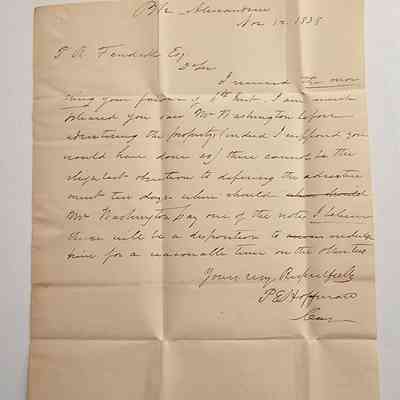 B/k Alexandria
Nov 12. 1838
P. R. Fendall Esq
D Sir
I received this mor
ning your favour of 6th Inst, I am much
pleased you saw Mr Washington before
advertising the property (indeed I supposed you
would have done so) there cannot be the
slightest objection to defering the advertise
ment ten days when should
Mr Washington pay one of the notes I believe
there will be a disposition to indulge
him for a reasonable time on the other
Yours very Respectfully
P E Hoffman